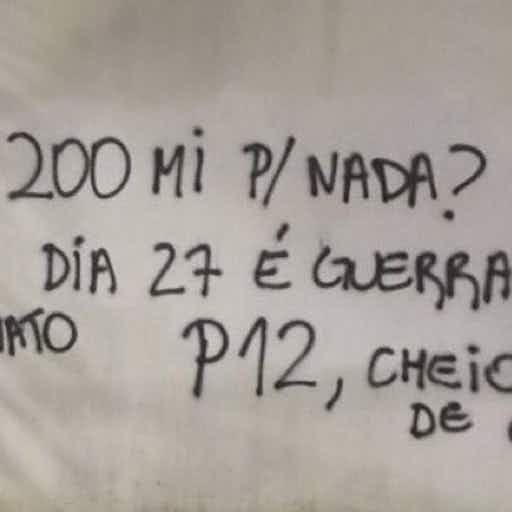 200 Mi P/ NADA?
DiA 27 É GUERRA
P12, CHEiO
DE